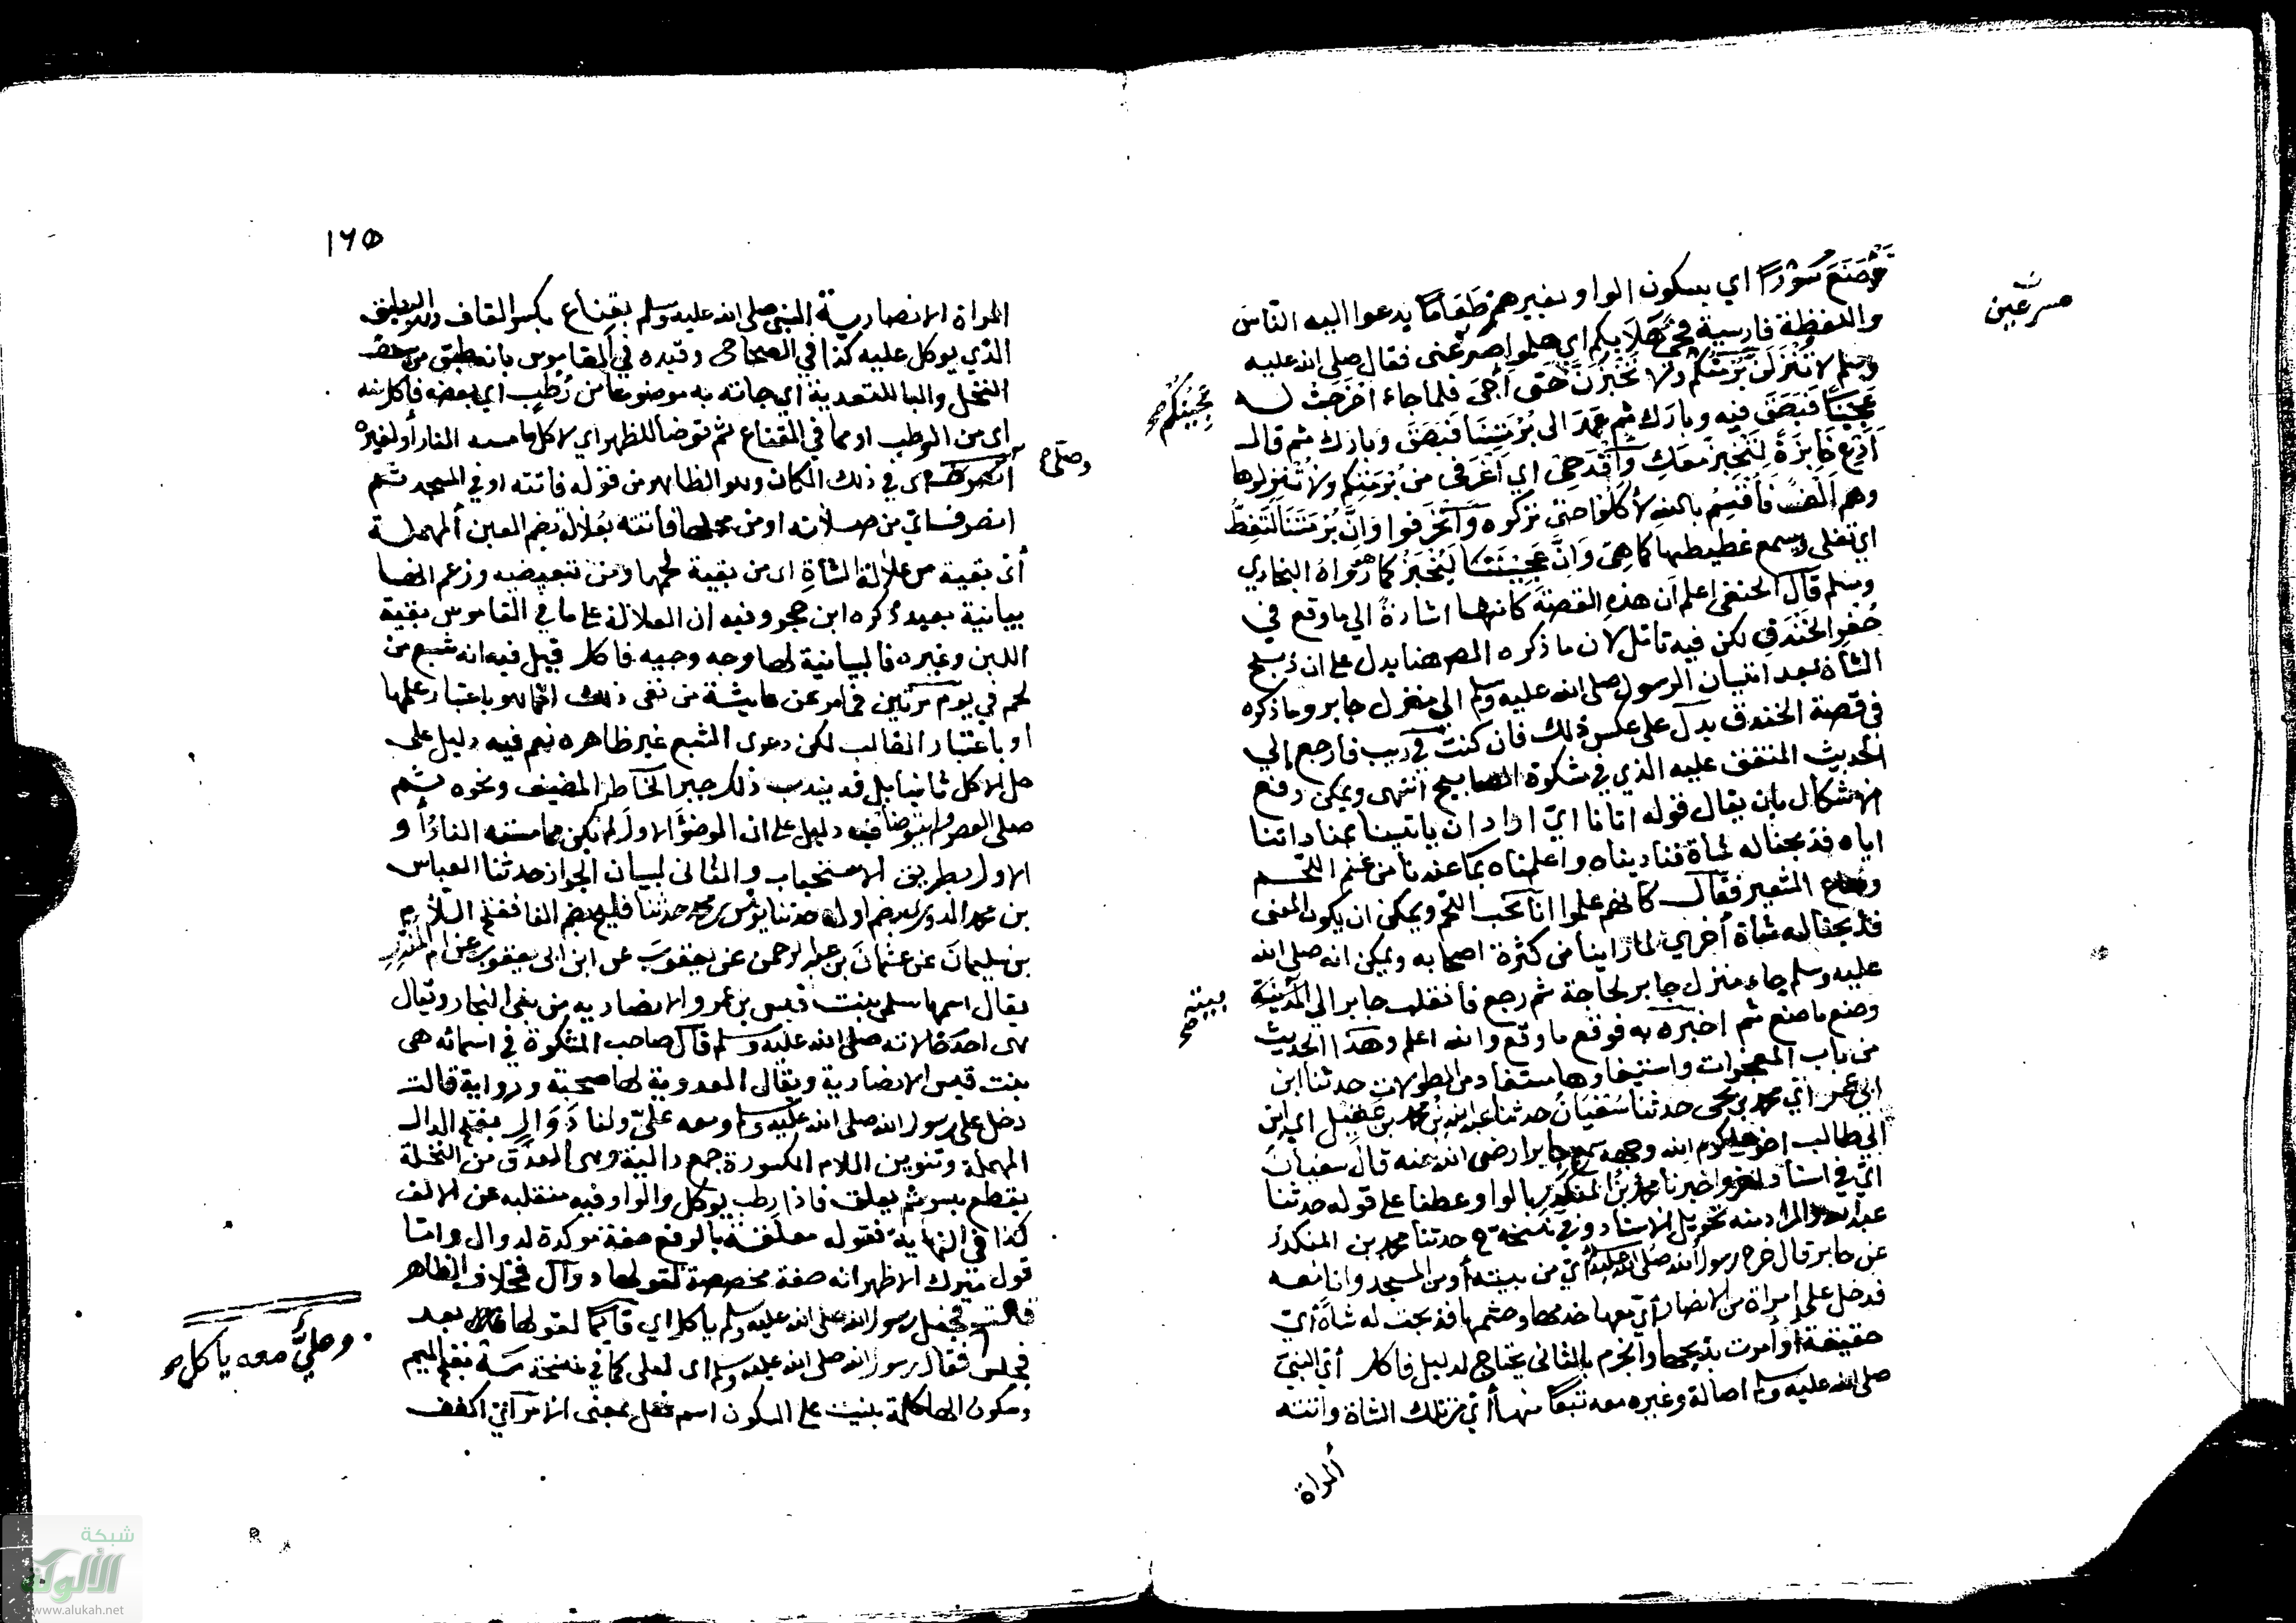 صنع سُؤْرًا اي بسكون الواو بغير همز طَعَامًا يدعوا اليه الناسَ
واللفظة فارسية فحَيَّ هَلًا بكم اي هلموا فقال صلى الله عليه
وسلم لا تُنْزِلُنَّ بُرْمَتَكم ولا تَخْبِزُنَّ حَتى أجيَ فلما جاء اخرَجَتْ له
عَجِينًا فَبَصَقَ فيه وبارك ثم عَمَدَ الى بُرْمَتِنَا فَبَصَقَ وبارك ثم قال
اُدْعِ خابزةً لِتَخْبِزَ معَكِ وَاقْدَحِيْ اي اَغْرِفى من بُرْمَتِكم ولا تُنْزِلوها
وهم اَلْفٌ فَاُقْسِمُ بالله لأكلوا حتى تركوه وَانحَرفوا وَاِنَّ بُرْمَتَنَا لَتَغِطُّ
اي تغلى ويسمع غطيطها كما هِىَ وَاِنَّ عَجِيْنَتَنَا لَتُخْبَزُ كما هُوَ رواه البخاري
ومسلم قال الحنفى اعلم اَن هذه القصةَ كانها اشارةٌ الي ما وقع في
حُفرِ الخندقِ لكن فيه تامّل لان ما ذكره المص هنا يدل على ان ذبح
الشاة بعد اتيان الرسول صلى الله عليه وسلم الى منزل جابر وما ذكره
في قصة الخندق يدل على عكس ذلك فان كنتَ في ريب فارجع الي
الحديث المتفق عليه الذي في مشكوة المصابيح انتهى ويمكن دفع
الاشكال بان يقال قوله اتانا ايْ اراد ان ياتينا
اياه فذبحنا له شاة فناديناه واعلمناه بما عندنا من غنم اللحم
وصاع الشعير فقال كانهم علموا انا نحب اللحم ويمكن ان يكون المعنى
فذبحنا له شاة أخرى لما راينا من كثرة اصحابه ويمكن انه صلى الله
عليه وسلم جاء منزل جابر لحاجة ثم رجع فانفلت جابر الي
وصنع ما صنع ثم اخبره به فوقع ما وقع والله اعلم وهذا الحديث
من باب المعجزات واستيفاوها مستفاد من المطولات حدثنا ابن
ابي عمر اي محمد بن يحيى حدثنا سُفيَان حدثنا عبد الله بن محمد بن عَقِيل اي ابن
ابي طالب اخو على كرم الله وجهه سمع جابرا رضى الله عنه قال سفيان
ايْ في اسناد اخر واخبرنا محمد بن المنكدر بالواو وعطفا على قوله حدثنا
عبد الله والمراد منه تحويل الاسناد وفي نسخة ح حدثنا محمد بن المنكدر
عن جابر قال خرج رسول الله صلى الله عليه وسلم أي من بيته أو من المسجد وانا معه
فدخل على امراة من الانصار أي معها خدمها وحشمها فذبحت له شاةً أي
حقيقة أو امرت بذبحها والجزم بالثاني يحتاج لدليل فاكل أي النبي
صلى الله عليه وسلم اصالة وغيره معه تبعًا منها أي من تلك الشاة واتته
المراة
بيته صح
١٦٥
المراة الانصارية النبيَ صلى الله عليه وسلم بقِناع بكسر القاف
الذي يوكل عليه كذا في الصحاح وقيده في القاموس بانه طبق من سعف
النخل والبا للتعدية اي جاتته به موضوعا من رُطَبٍ اي بعضه فاكل منه
اي من الرطب او مما في القناع ثم توضا للظهر اي لا كل ما مسه النار أو لغيره
اي في ذلك المكان وهو الظاهر من قوله فاتته او في المسجد ثم
انصرف اي من صلاته او من محلها فاتته بعُلالة بضم العين المهملة
أي بقية من علالة الشاةِ اى من بقية لحمها ومن تبعيضيه وزعم انها
بيانية بعيد ذكره ابن حجر وفيه ان العلالة على ما في القاموس بقية
اللبن وغيره فالبيانية لها وجه وجيه فاكل قيل فيه انه شبع من
لحم في يوم مرّتين فما مر عن عايشة من نفى ذلك انما هو باعتبار علمها
او باعتبار الغالب لكن دعوى الشبع غير ظاهره نعم فيه دليل على
حل الاكل ثانيا بل قد يندب ذلك جبر الخاطر المضيف ونحوه ثم
صلى العصر ولم يتوضا فيه دليل على ان الوضؤ الاول لم يكن مما مسته النار أو
الاول بطريق الاستحباب والثانى لبيان الجواز حدثنا العباس
بن محمد الدوري بضم اوله حدثنا يونس بن محمد حدثنا فليح بضم الفا ففتح اللام
بن سليمانَ عن عثمانَ بن عبد الرحمن عن يعقوبَ بن ابى يعقوب عن ام المنذر
يقال اسمها سلمى بنت قيس بن عمرو الانصاريه من بنى النجار ويقال
هى احدى خالاته صلى الله عليه وسلم قال صاحب المشكوة في اسمائه هى
بنت قيس الانصارية ويقال العدوية لها صحبة ورواية قالت
دخل على رسول الله صلى الله عليه وسلم ومعه علىّ ولنا دَوَالٍ بفتح الدال
المهملة وتنوين اللام المكسورة جمع دالية وهى العذق من النخلة
يقطع بسر ثم يعلق فاذا رطب يوكل والواو فيه منقلبه عن الالف
كذا في النهاية فقوله معلقة بالرفع صفة موكدة لدوال واما
قول ميرك الاظهر انه صفة مخصصة لقولها دوال فخلاف الظاهر
قالت فجعل رسول الله صلى الله عليه وسلم ياكل اي قايما لقولها بعد
فجلس فقال رسول الله صلى الله عليه وسلم اى لعلى كما في نسخة مَهْ بفتح الميم
وسكون الها كلمة بنيت على السكون اسم فعل بمعنى الامر اي اكفف
وصلى
وعليٌّ معه ياكل صح